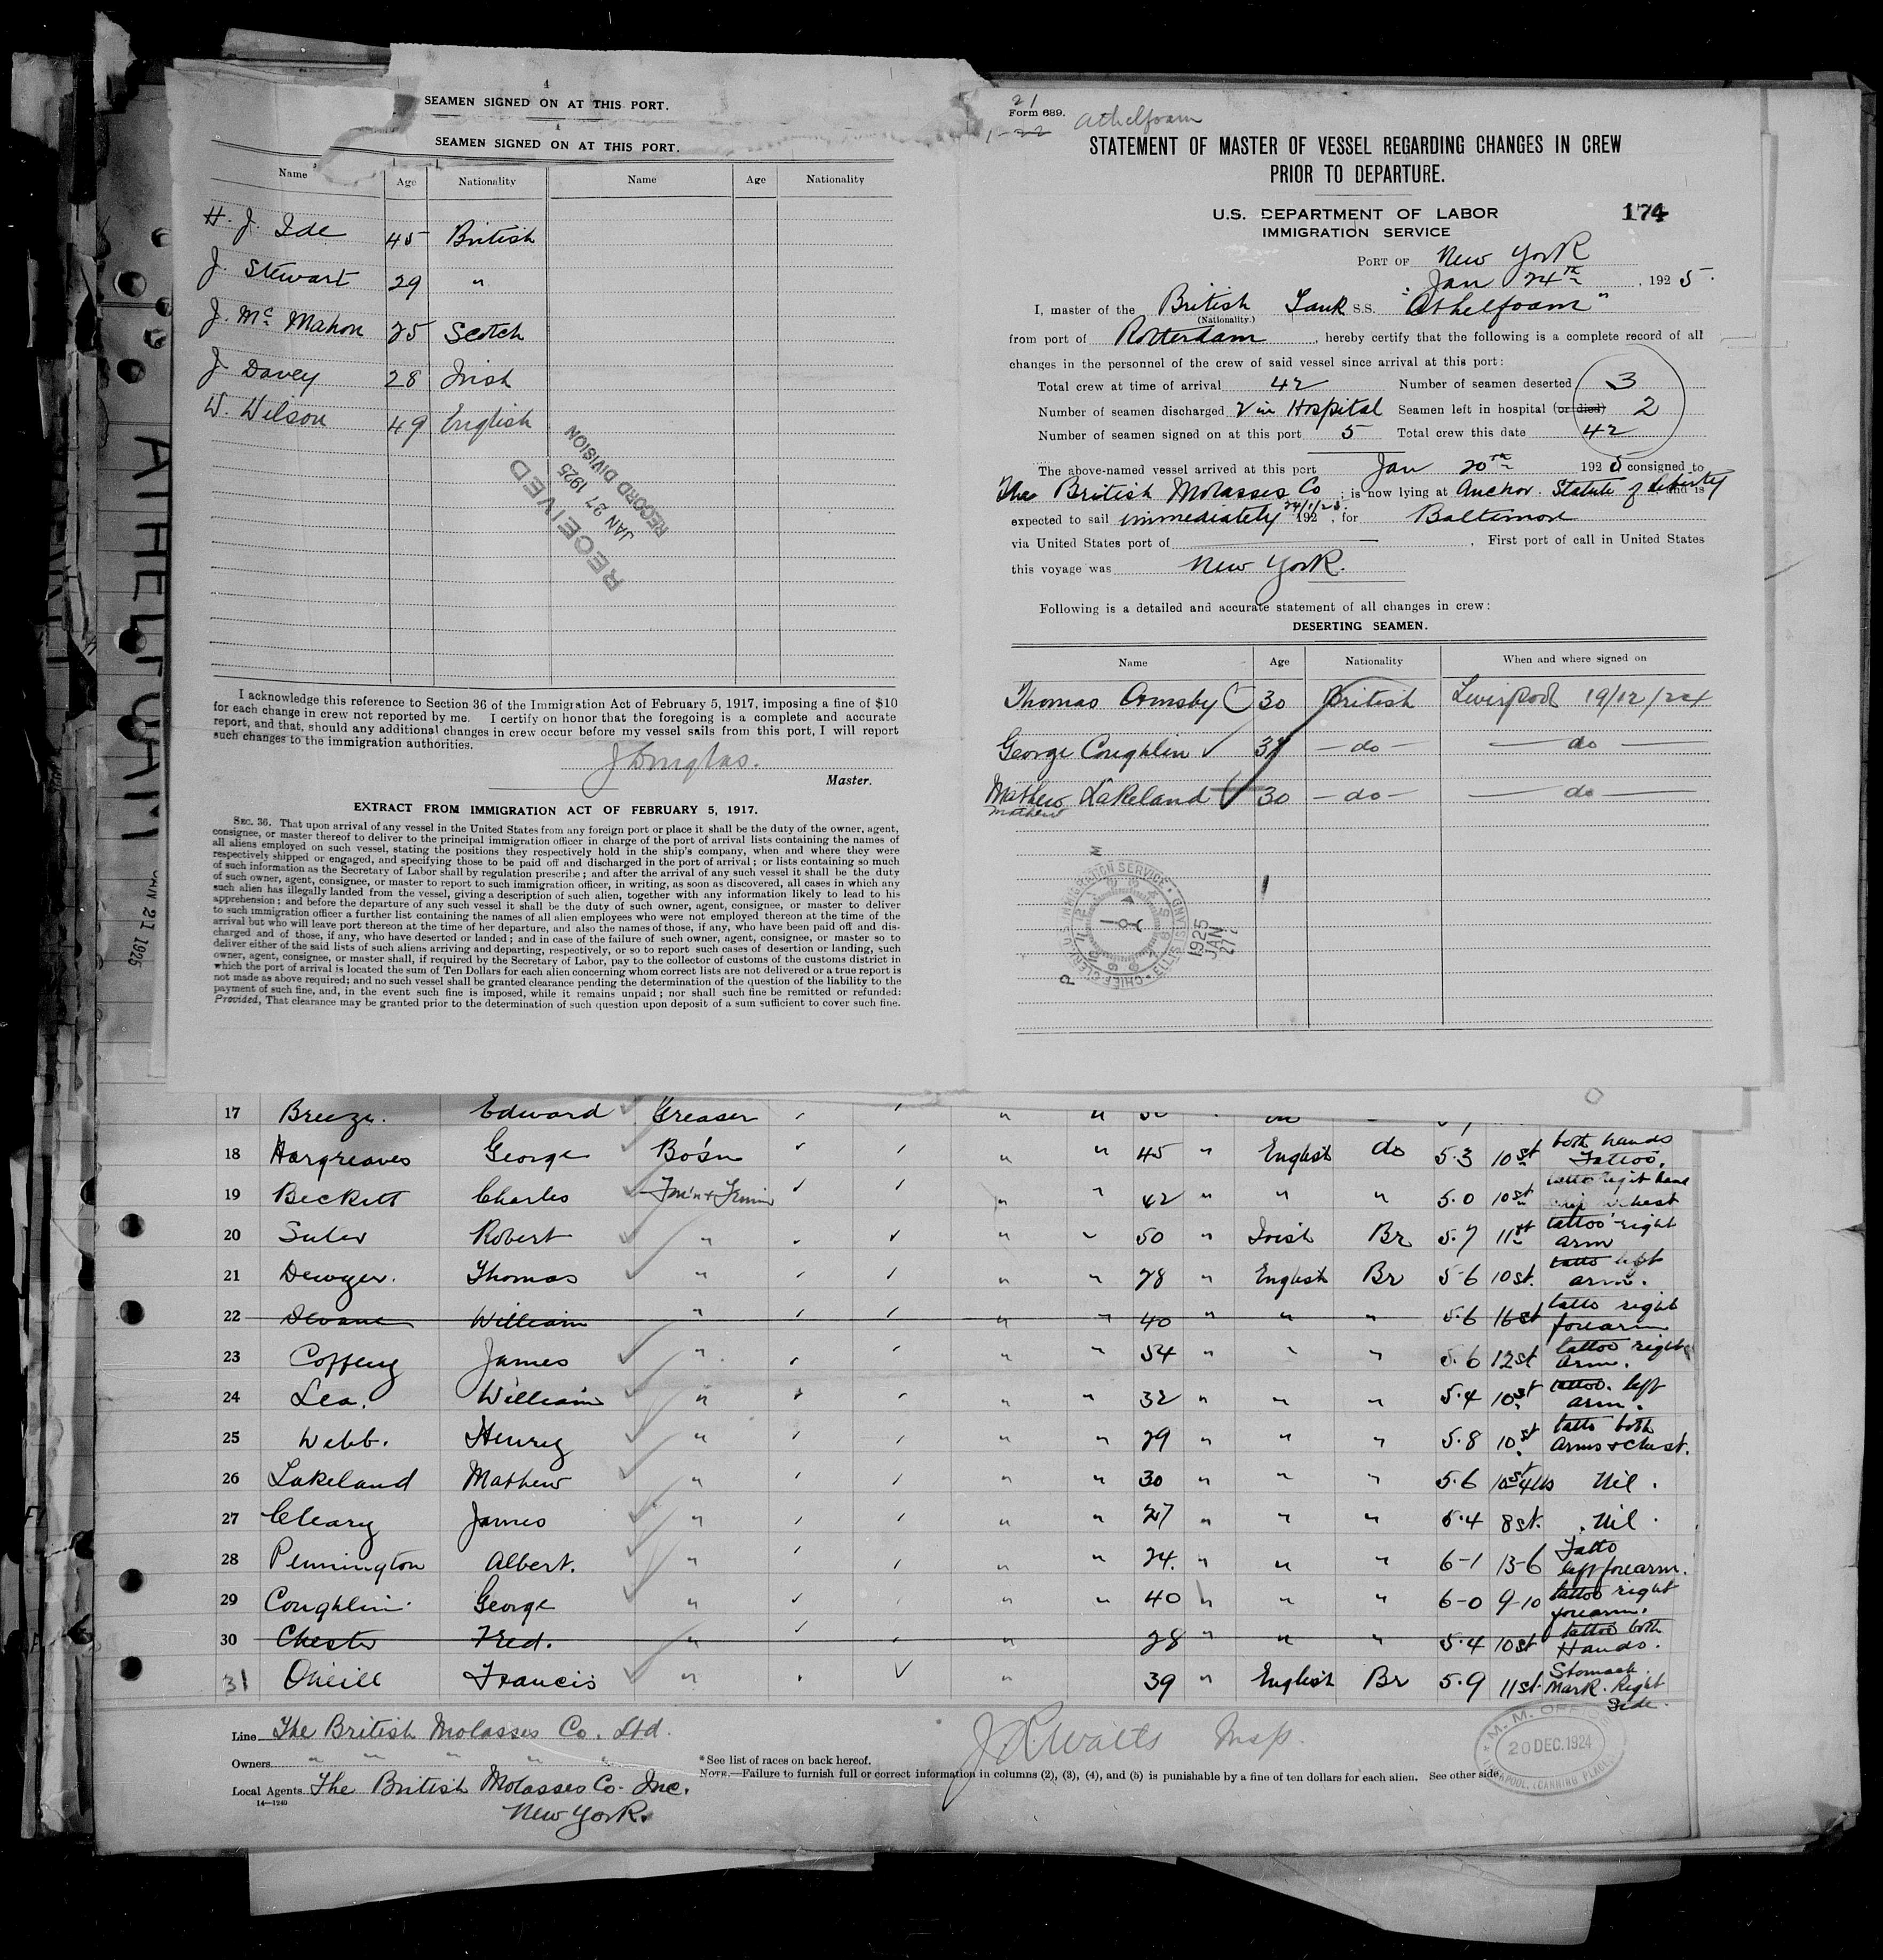 4
SEAMEN SIGNED ON AT THIS PORT.
SEAMEN SIGNED ON AT THIS PORT.
Name Age Nationality Name Age Nationality
H. J. Ide 45 British
J. Stewart 29 "
J. Mc Mahon 25 Scotch
J Davey 28 Irish
W. Wilson 49 English
RECEIVED
JAN 27 1925
RECORD DIVISION
I acknowledge this reference to Section 36 of the Immigration Act of February 5, 1917, imposing a fine of $10
for each change in crew not reported by me. I certify on honor that the foregoing is a complete and accurate
report, and that, should any additional changes in crew occur before my vessel sails from this port, I will report
such changes to the immigration authorities.
J Douglas.
Master.
EXTRACT FROM IMMIGRATION ACT OF FEBRUARY 5, 1917.
SEC. 36. That upon arrival of any vessel in the United States from any foreign port or place it shall be the duty of the owner, agent,
consignee, or master thereof to deliver to the principal immigration officer in charge of the port of arrival lists containing the names of
all aliens employed on such vessel, stating the positions they respectively hold in the ship's company, when and where they were
respectively shipped or engaged, and specifying those to be paid off and discharged in the port of arrival; or lists containing so much
of such information as the Secretary of Labor shall by regulation prescribe; and after the arrival of any such vessel it shall be the duty
of such owner, agent, consignee, or master to report to such immigration officer, in writing, as soon as discovered, all cases in which any
such alien has illegally landed from the vessel, giving a description of such alien, together with any information likely to lead to his
apprehension; and before the departure of any such vessel it shall be the duty of such owner, agent, consignee, or master to deliver
to such immigration officer a further list containing the names of all alien employees who were not employed thereon at the time of the
arrival but who will leave port thereon at the time of her departure, and also the names of those, if any, who have been paid off and dis-
charged and of those, if any, who have deserted or landed; and in case of the failure of such owner, agent, consignee, or master so to
deliver either of the said lists of such aliens arriving and departing, respectively, or so to report such cases of desertion or landing, such
owner, agent, consignee, or master shall, if required by the Secretary of Labor, pay to the collector of customs of the customs district in
which the port of arrival is located the sum of Ten Dollars for each alien concerning whom correct lists are not delivered or a true report is
not made as above required; and no such vessel shall be granted clearance pending the determination of the question of the liability to the
payment of such fine, and, in the event such fine is imposed, while it remains unpaid; nor shall such fine be remitted or refunded:
Provided, That clearance may be granted prior to the determination of such question upon deposit of a sum sufficient to cover such fine.
ATHELFOAM
JAN 21 1925
21
Form 689. Athelfoam
STATEMENT OF MASTER OF VESSEL REGARDING CHANGES IN CREW
PRIOR TO DEPARTURE.
U.S. DEPARTMENT OF LABOR 174
IMMIGRATION SERVICE
PORT OF New York
Jan 24th, 1925.
I, master of the British Tank S.S. "Athelfoam"
(Nationality.)
from port of Rotterdam, hereby certify that the following is a complete record of all
changes in the personnel of the crew of said vessel since arrival at this port:
Total crew at time of arrival 42 Number of seamen deserted 3
Number of seamen discharged 2 in Hospital Seamen left in hospital (or died) 2
Number of seamen signed on at this port 5 Total crew this date 42
The above-named vessel arrived at this port Jan 20th 1925 consigned to
The British Molasses Co; is now lying at Anchor. Statute of Liberty and is
expected to sail immediately 24/1/25. 192, for Baltimore
via United States port of ———, First port of call in United States
this voyage was New York.
Following is a detailed and accurate statement of all changes in crew:
DESERTING SEAMEN.
Name Age Nationality When and where signed on
Thomas Ormsby 30 British Liverpool 19/12/24
George Coughlin ✓ 37 — do — — do —
Mathew Lakeland 30 — do — — do —
Mathew
IMMIGRATION SERVICE
CHIEF CLERK
ELLIS ISLAND
1925
JAN
27
17 Breeze. Edward Greaser
18 Hargreaves George Bo'sn " " 45 " English do 5.3 10st both hands Tattoo.
19 Beckett Charles " " 42 " " " 5.0 10st
20 Suter Robert " " " 50 " Irish Br 5.7 11st tattoo right arm
21 Dewyer. Thomas " " " 28 " English Br 5-6 10st. tatto left arm.
22 William " " " 40 " " " 5.6 16st tatto right forearm
23 Coffeny James " " " 54 " " " 5.6 12st tattoo right arm.
24 Lea. William " " " 32 " " " 5.4 10st tattoo. left arm.
25 Webb. Henry " " " 29 " " " 5.8 10st tatto both arms & chest.
26 Lakeland Mathew " " " 30 " " " 5.6 10st 4lbs Nil.
27 Cleary James " " " 27 " " " 5.4 8st. Nil.
28 Pennington Albert. " " " 24. " " " 6-1 13-6 Tatto left forearm.
29 Coughlin. George " " " 40 " " " 6-0 9-10 tattoo right forearm.
30 Chester Fred. " " 28 " " " 5.4 10st tattoo both Hands.
31 Oneill Francis " " 39 " English Br 5.9 11st. Stomach Mark. Right Side.
Line The British Molasses Co. Ltd.
Owners " " " " "
Local Agents The British Molasses Co. Inc.
14—1240
New York.
J. R. Watts Insp.
*See list of races on back hereof.
NOTE.—Failure to furnish full or correct information in columns (2), (3), (4), and (5) is punishable by a fine of ten dollars for each alien. See other side.
M. M. OFFICE
20 DEC. 1924
LIVERPOOL, (CANNING PLACE)